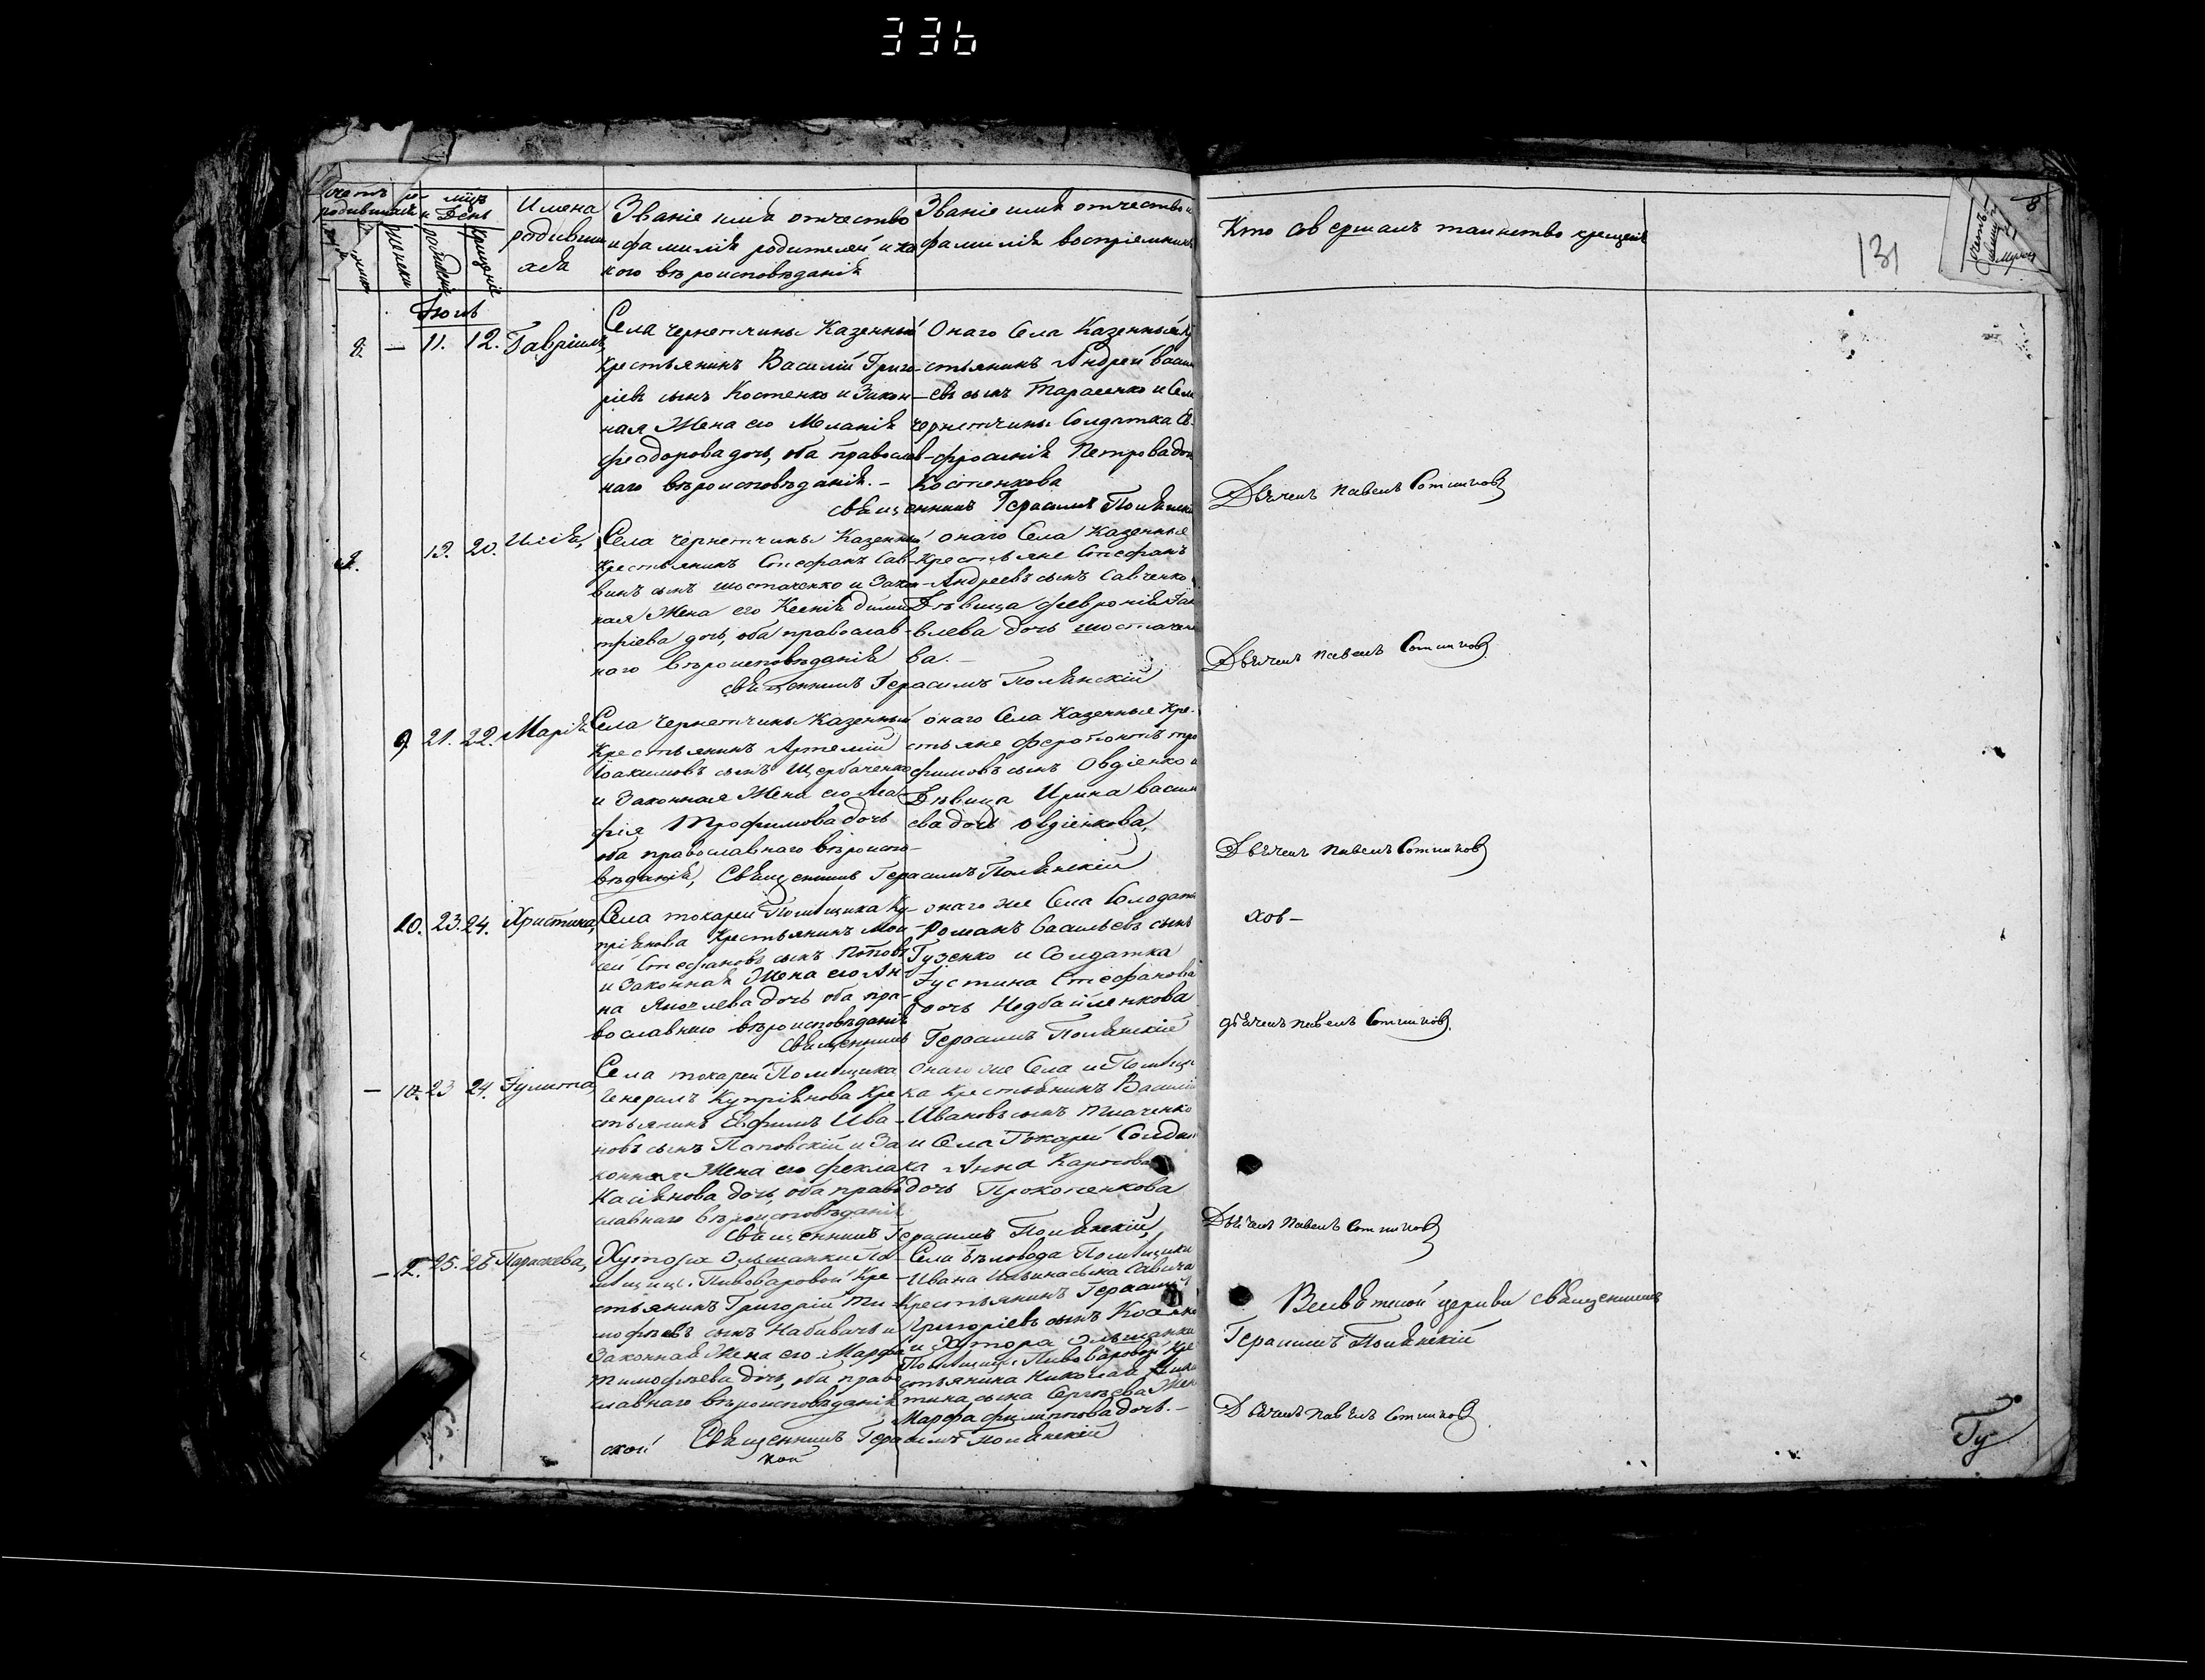 336
131
8
Счетъ ро-
родившихся
мцъ
и День
Имена
родивши
хся
женска
рожденія
крещенія
Званіе имя отчество
и фамилія родителей и ка
кого вѣроисповѣданія
Званіе имя отчество и
фамилія воспріемник
Кто совершалъ таинство крещенія
Іюль
8. — 11. 12. Гавріилъ,
Села Чернетчины Казенный
крестьянинъ Василій Григо-
ріевъ сынъ Костенко и Закон-
ная Жена его Меланія
Феодорова дочь, оба православ-
наго вѣроисповѣданія. —
Онаго Села Казенный кр
стьянинъ Андрей Васил
евъ сынъ Тарасенко и Села
Чернетчины Солдатка Ев-
фросинія Петрова дочь
Костенкова
Священникъ Герасимъ Полянскій
Дьячекъ Павелъ Сотников
19. 20. Илія,
Села Чернетчины Казенный
крестьянинъ Стефанъ Сав-
винъ сынъ Шостаченко и Закон-
ная Жена его Ксенія Дими
тріева дочь, оба православ-
наго вѣроисповѣданія
онаго Села Казенные
крестьяне Стефанъ
Андреевъ сынъ Савченко и
Дѣвица Февронія Іак
влева дочь Шостачен
ва. —
Священникъ Герасимъ Полянскій
Дьячекъ Павелъ Сотников
9. 21. 22. Марія
Села Чернетчины Казенный
Крестьянинъ Артемій
Іоакимовъ сынъ Щербаченко
и Законная Жена его Ага-
фія Трофимова дочь
оба православнаго вѣроиспо-
вѣданія,
онаго Села Казенные Кре-
стьяне Ферапонтъ Тро
фимовъ сынъ Овдіенко и
Дѣвица Ирина Васил
ева дочь Овдіенкова,
Священникъ Герасимъ Полянскій
Дьячекъ Павелъ Сотников
10. 23. 24. Христина,
Села Токарей Помѣщика Ку-
пріянова Крестьянинъ Мои
сей Стефановъ сынъ Попов
и Законная Жена его Ан-
на Яковлева дочь оба пра-
вославнаго вѣроисповѣданія
онаго же Села Солдатъ
Романъ Васильевъ сынъ
Гузенко и Солдатка
Іустина Стефанова
дочь Недбайленкова
Священникъ Герасимъ Полянскій
хов —
Дьячекъ Павелъ Сотников
— 10. 23 24. Іулита,
Села Токарей Помѣщика
Генералъ Купріянова Кре
стьянинъ Евфимъ Ива-
новъ сынъ Паповскій и За
конная Жена его Фекла
Касіянова дочь, оба право
славнаго вѣроисповѣданія
Онаго же Села и Помѣщи
ка Крестьянинъ Василій
Ивановъ сынъ Ткаченко
и Села Токарей Солдат
ка Анна Карпова
дочь Прокопенкова
Священникъ Герасимъ Полянскій,
Дьячекъ Павелъ Сотников
— 12. 25. 26 Параскева,
Хутора Ольшанки По-
мѣщицы Пивоваровой Кре-
стьянинъ Григорій Ти-
мофѣевъ сынъ Набивачъ и
Законная Жена его Марфа
Тимофѣева дочь, оба право
славнаго вѣроисповѣданія
Села Бѣловода Помѣщика
Ивана Ильина сына Савича
Крестьянинъ Герасимъ
Григоріевъ сынъ
и Хутора Ольшанки
Помѣщицы Пивоваровой Кре
стьянина Николая Ники
тина сына Сергѣева Жен
Марфа Филиппова дочь. —
Священникъ Герасимъ Полянскій
Всесвятской церкви священникъ
Герасимъ Полянскій
Дьячекъ Павелъ Сотников
ской
кой
Гу